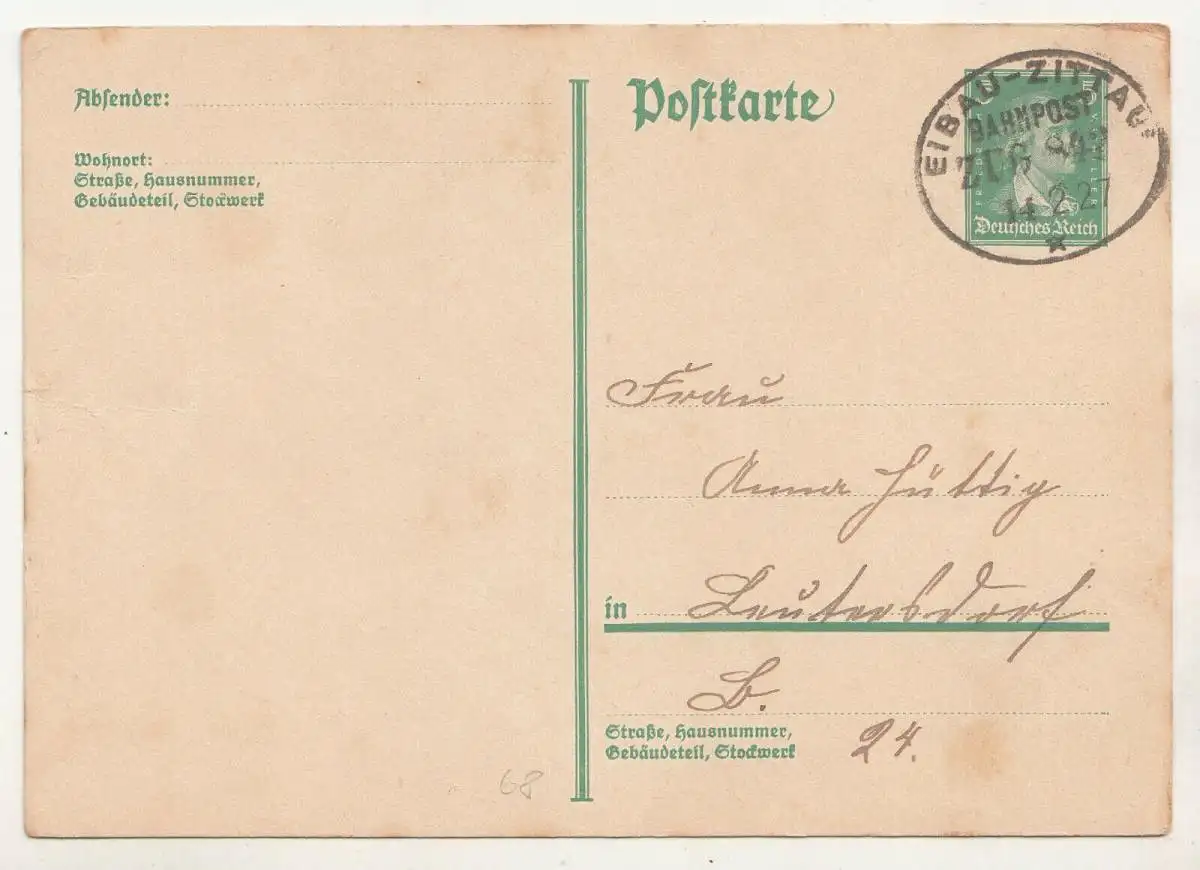 Absender:
Wohnort:
Straße, Hausnummer,
Gebäudeteil, Stockwerk
Postkarte
EIBAU-ZITTAU
BAHNPOST
ZUG
14 2 27
FRIEDRICH VON SCHILLER
Deutsches Reich
Frau
Anna Hüttig
in Leutersdorf
B.
Straße, Hausnummer,
Gebäudeteil, Stockwerk
24.
68